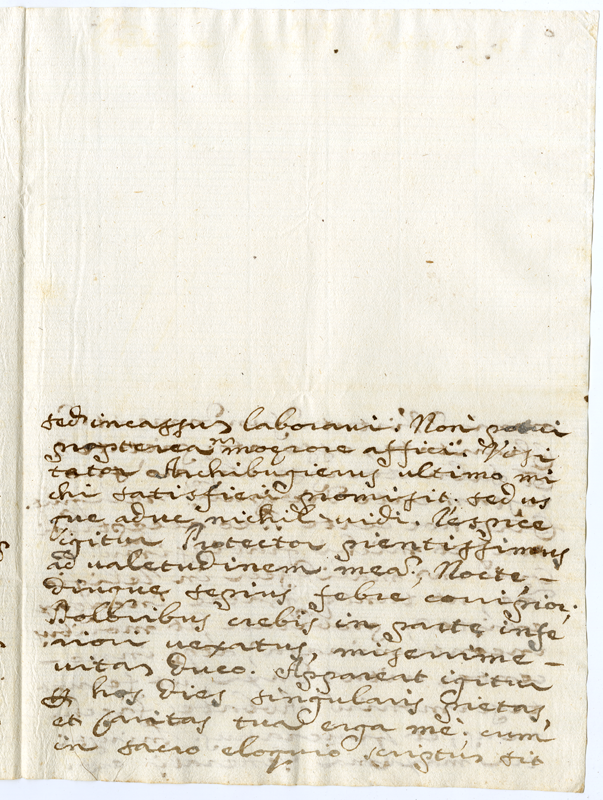 sed incassum laboravi. Non potui
propterea non moerore affici. Visi
tator Archibugierus ultimo mi
chi satisfieri promisit. sed us
que aduc nichil vidi. Respice
igitur Protector pientissimus
ad valetudinem meam, Nocte-
dieque sepius febre corripior.
Doloribus crebis in parte infe
riori vexatus, miserrime-
vitam duco. Appareat igitur
hos dies singularis pietas,
et Caritas tua erga me. cum
in sacro eloquio scriptum sit